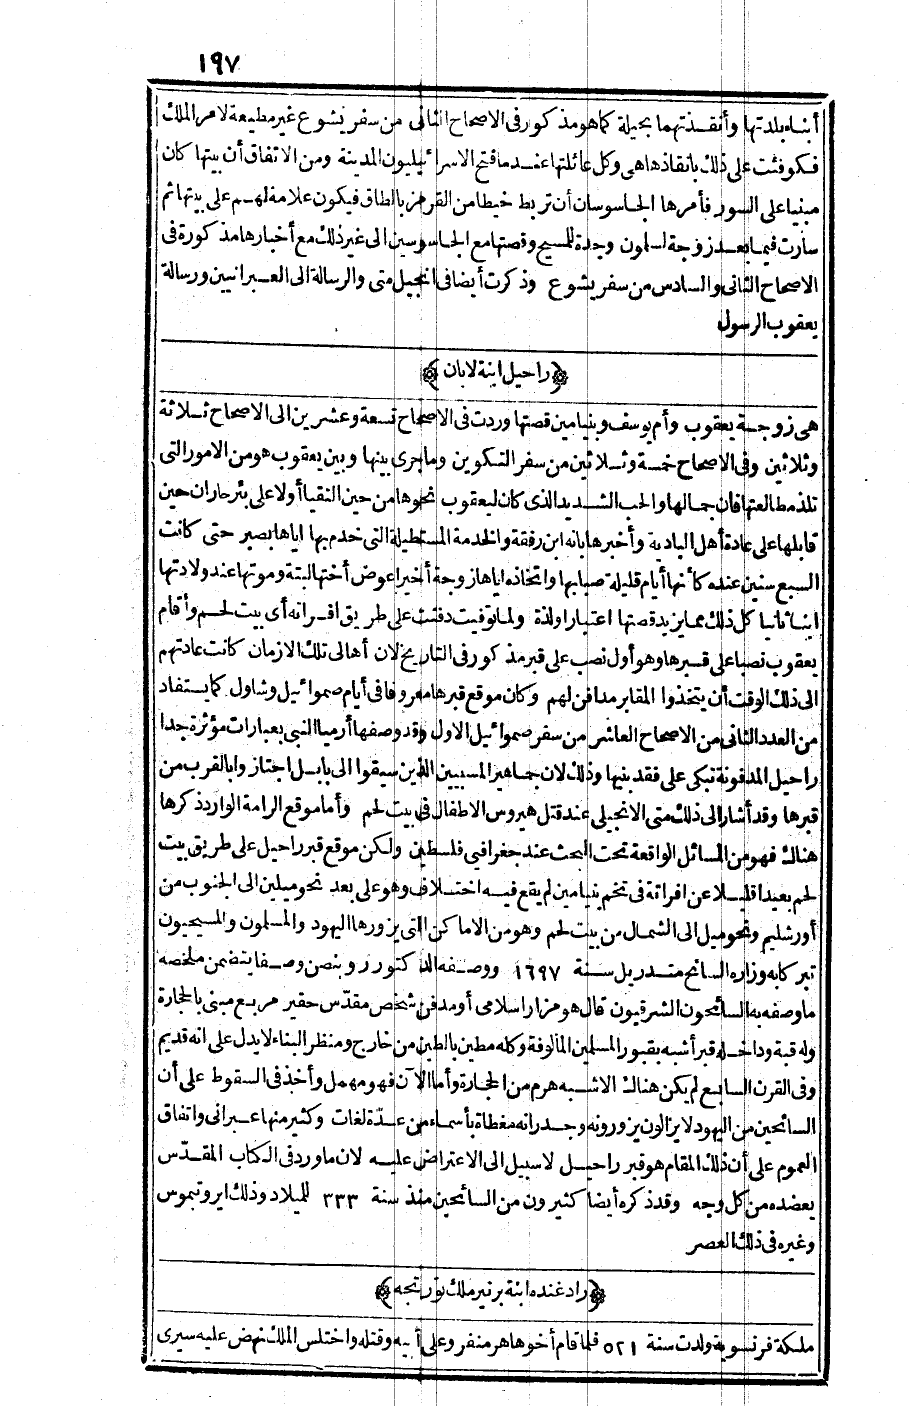 ١٩٧
أبناء بلدتها وأنقذتهما بحيلة كما هو مذكور فى الاصحاح الثانى من سفر يشوع غير مطيعة لامر الملك
فكوفئت على ذلك بانقاذها هى وكل عائلتها عند ما فتح الاسرائيليون المدينة ومن الاتفاق أن بيتها كان
مبنيا على السور فأمرها الجاسوسان أن تربط خيطا من القرمز بالطاق فيكون علامة لهم على بيتها ثم
سارت فيما بعد زوجة لسلمون وجدة للمسيح وقصتها مع الجاسوسين الى غير ذلك مع أخبارها مذكورة فى
الاصحاح الثانى والسادس من سفر يشوع وذكرت أيضا فى انجيل متى والرسالة الى العبرانيين ورسالة
يعقوب الرسول
﴿راحيل ابنة لابان﴾
هى زوجة يعقوب وأم يوسف وبنيامين قصتها وردت فى الاصحاح تسعة وعشرين الى الاصحاح ثلاثة
وثلاثين وفى الاصحاح خمسة وثلاثين من سفر التكوين وماجرى بينها وبين يعقوب هو من الامور التى
تلذ مطالعتها فان جمالها والحب الشديد الذى كان ليعقوب نحوها من حين التقيا أولا على بئر حاران حين
قابلها على عادة أهل البادية وأخبرها بانه ابن رفقة والخدمة المستطيلة التى خدم بها اياها بصبر حتى كانت
السبع سنين عنده كأنها أيام قليلة صبا بها واتخاذه اياها زوجة أخيرا عوض أختها البتة وموتها عند ولادتها
ابنا ثانيا كل ذلك مما يزيد قصتها اعتبارا ولذة ولما توفيت دفنت على طريق افراته أى بيت لحم وأقام
يعقوب نصبا على قبرها وهو أول نصب على قبر مذكور فى التاريخ لان أهالى تلك الازمان كانت عادتهم
الى ذلك الوقت أن يتخذوا المقابر مدافن لهم وكان موقع قبرها معروفا فى أيام صموائيل وشاول كما يستفاد
من العدد الثانى من الاصحاح العاشر من سفر صموائيل الاول وقد وصفها أرميا النبى بعبارات مؤثرة جدا
راحيل المدفونة تبكى على فقد بنيها وذلك لان جماهير المسبيين الذين سيقوا الى بابل اجتازوا بالقرب من
قبرها وقد أشار الى ذلك متى الانجيلى عند قتل هيروس الاطفال فى بيت لحم وأما موقع الرامة الوارد ذكرها
هناك فهو من المسائل الواقعة تحت البحث عند جغرافيى فلسطين ولكن موقع قبر راحيل على طريق بيت
لحم بعيدا قليلا عن افراتة فى تخم بنيامين لم يقع فيه اختلاف وهو على بعد نحو ميلين الى الجنوب من
أورشليم ونحو ميل الى الشمال من بيت لحم وهو من الاماكن التى يزورها اليهود والمسلمون والمسيحيون
تبركا به وزاره السائح متدريل سنة ١٦٩٧ ووصفه الدكتور روبنصن وصفا يتضمن ملخصه
ما وصفه به السائحون الشرقيون قال هو مزار اسلامى أو مدفن شخص مقدّس حقير مربع مبنى بالحجارة
وله قبة وداخله قبر أشبه بقبور المسلمين المألوفة وكله مطين بالطين من خارج ومنظر البناء لا يدل على انه قديم
وفى القرن السابع لم يكن هناك الا شبه هرم من الحجارة وأما الآن فهو مهمل وأخذ فى السقوط على أن
السائحين من اليهود لا يزالون يزورونه وجدرانه مغطاة بأسماء من عدّة لغات وكثير منها عبرانى واتفاق
العموم على أن ذلك المقام هو قبر راحيل لا سبيل الى الاعتراض عليه لان ماورد فى الكتاب المقدّس
يعضده من كل وجه وقد ذكره أيضا كثيرون من السائحين منذ سنة ٣٣٣ للميلاد وذلك ايرونيموس
وغيره فى ذلك العصر
﴿رادغنده ابنة برتير ملك تورتجه﴾
ملكة فرنسوية ولدت سنة ٥٢١ فلما قام أخوها هرمنفرو على أبيه وقتله واختلس الملك نهض عليه سيرى